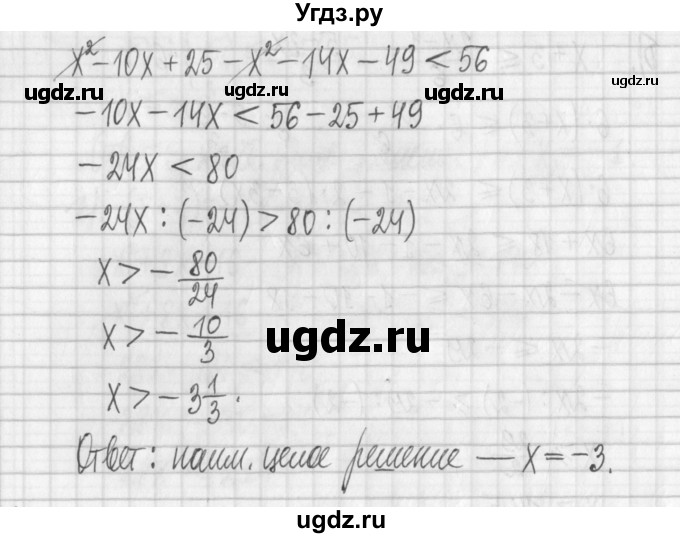 Угдз.ру
x² - 10x + 25 - x² - 14x - 49 < 56
ugdz.ru ugdz.ru ugdz.ru ugdz.ru
-10x - 14x < 56 - 25 + 49
-24x < 80
-24x : (-24) > 80 : (-24)
x > - 80/24
x > - 10/3
ugdz.ru ugdz.ru
x > -3 1/3.
Ответ: наим. целое решение — x = -3.
ugdz.ru